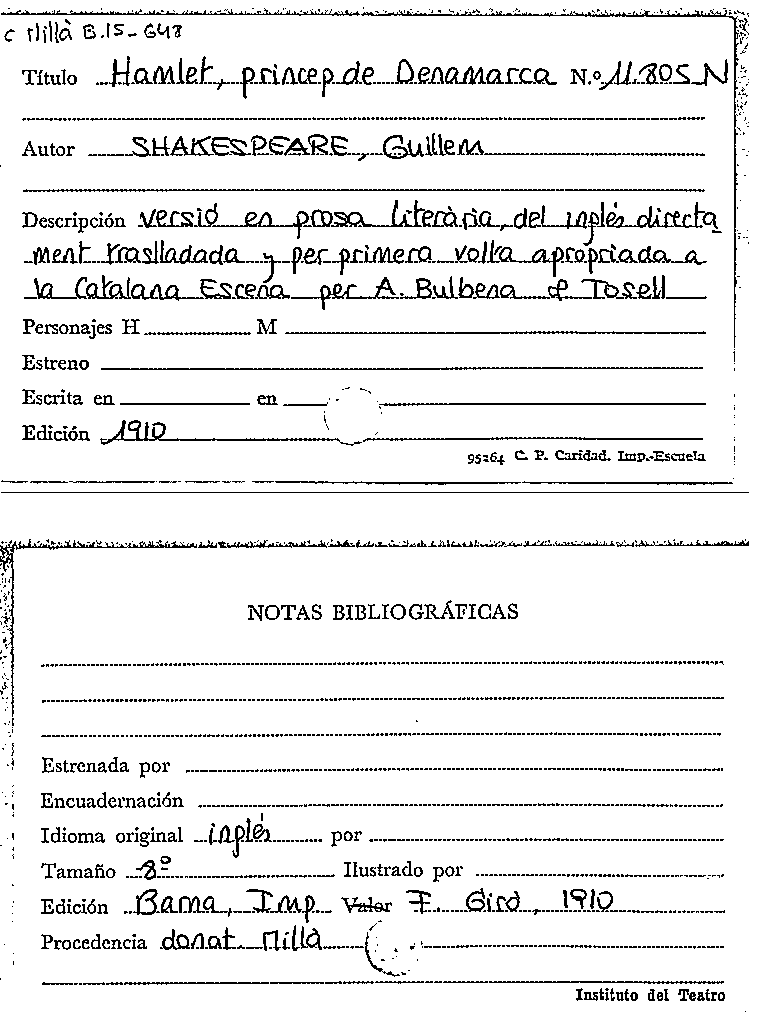 C Millà B.15-648
Título Hamlet, princep de Denamarca N.º 11.805 N
Autor SHAKESPEARE, Guillem
Descripción versió en prosa literària, del inglés directa
ment traslladada y per primera volta apropriada a
la Catalana Escena per A. Bulbena & Tosell
Personajes H M
Estreno
Escrita en en
Edición 1910
95264 C. P. Caridad. Imp.-Escuela
NOTAS BIBLIOGRÁFICAS
Estrenada por
Encuadernación
Idioma original inglés por
Tamaño 8º Ilustrado por
Edición Barna, Imp Valor F. Giró, 1910
Procedencia donat. Millà
Instituto del Teatro